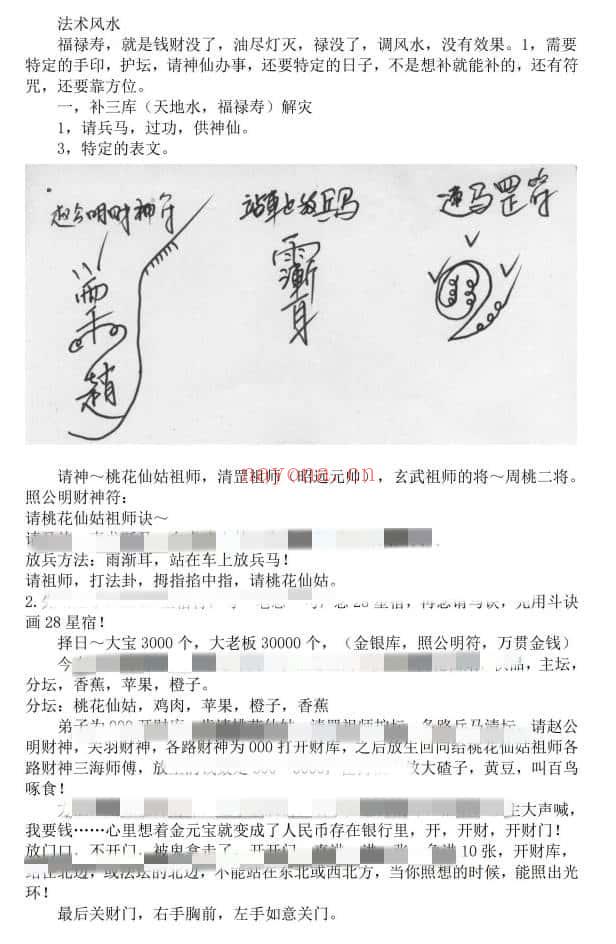 法术风水
福禄寿，就是钱财没了，油尽灯灭，禄没了，调风水，没有效果。1，需要
特定的手印，护坛，请神仙办事，还要特定的日子，不是想补就能补的，还有符
咒，还要靠方位。
一，补三库（天地水，福禄寿）解灾
1，请兵马，过功，供神仙。
3，特定的表文。
赵公明财神符
站車上放兵马
速马罡符
雨漸耳
趙
请神～桃花仙姑祖师，清罡祖师（昭远元帅），玄武祖师的将～周桃二将。
nayona.cn
照公明财神符：
请桃花仙姑祖师诀～
放兵方法：雨渐耳，站在车上放兵马！
请祖师，打法卦，拇指掐中指，请桃花仙姑。
2.
画28星宿！
择日～大宝3000个，大老板30000个，（金银库，照公明符，万贯金钱）
主坛，
分坛，香蕉，苹果，橙子。
分坛：桃花仙姑，鸡肉，苹果，橙子，香蕉
弟子为000开财库，
请赵公
明财神，关羽财神，各路财神为000打开财库，之后放生回向给桃花仙姑祖师各
路财神三海师傅，放
放大碴子，黄豆，叫百鸟
啄食！
主大声喊，
我要钱……心里想着金元宝就变成了人民币存在银行里，开，开财，开财门！
放门口，不开门，被鬼拿走了，
10张，开财库，
站在北边，或法坛的北边，不能站在东北或西北方，当你照想的时候，能照出光
环！
最后关财门，右手胸前，左手如意关门。